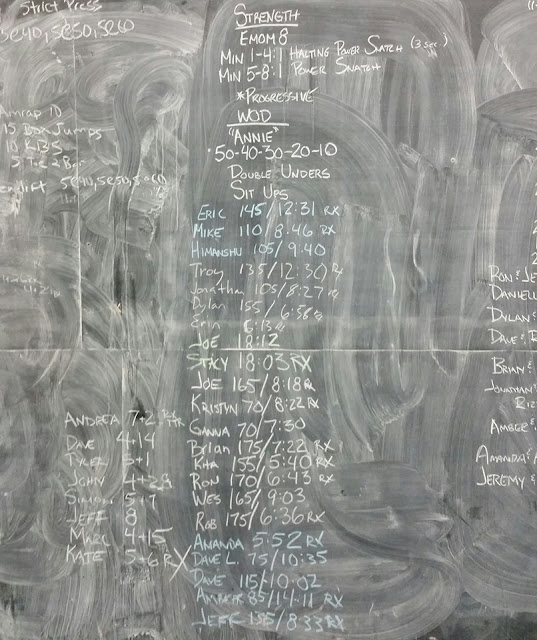 Strict Press
5@40, 5@50, 5@60
Amrap 10
15 Box Jumps
10 KBS
5 T2B
5@40, 5@50, 5@60
STRENGTH
EMOM 8
MIN 1-4: 1 HALTING POWER SNATCH (3 SEC)
MIN 5-8: 1 POWER SNATCH
*PROGRESSIVE
WOD
"ANNIE"
50-40-30-20-10
DOUBLE UNDERS
SIT UPS
ERIC 145/12:31 RX
MIKE 110/8:46 RX
HIMANSHU 105/9:40
Troy 135/12:30 Rx
Jonathan 105/8:27 Rx
Dylan 155/6:58 Rx
Erin 6:13 Rx
JOE 18:12
STACY 18:03 RX
JOE 165/8:18 RX
KRISTYN 70/8:22 RX
GANNA 70/7:30
Brian 175/7:22 RX
155/5:40 RX
RON 170/6:43 RX
WES 165/9:03
ROB 175/6:36 RX
AMANDA 5:52 RX
DAVE L. 75/10:35
DAVE 115/10:02
AMBER 85/14:11 RX
JEFF 135/8:33 RX
ANDREA 7+2
DAVE 4+14
TYLER 5+1
JOHN
SIMON 5+7
JEFF 8
MARC 4+15
KATE 5+6 RX
RON: JE
DANIELL
DYLAN:
DAVE:
BRIAN:
JONATHAN:
AMBER:
AMANDA:
JEREMY: